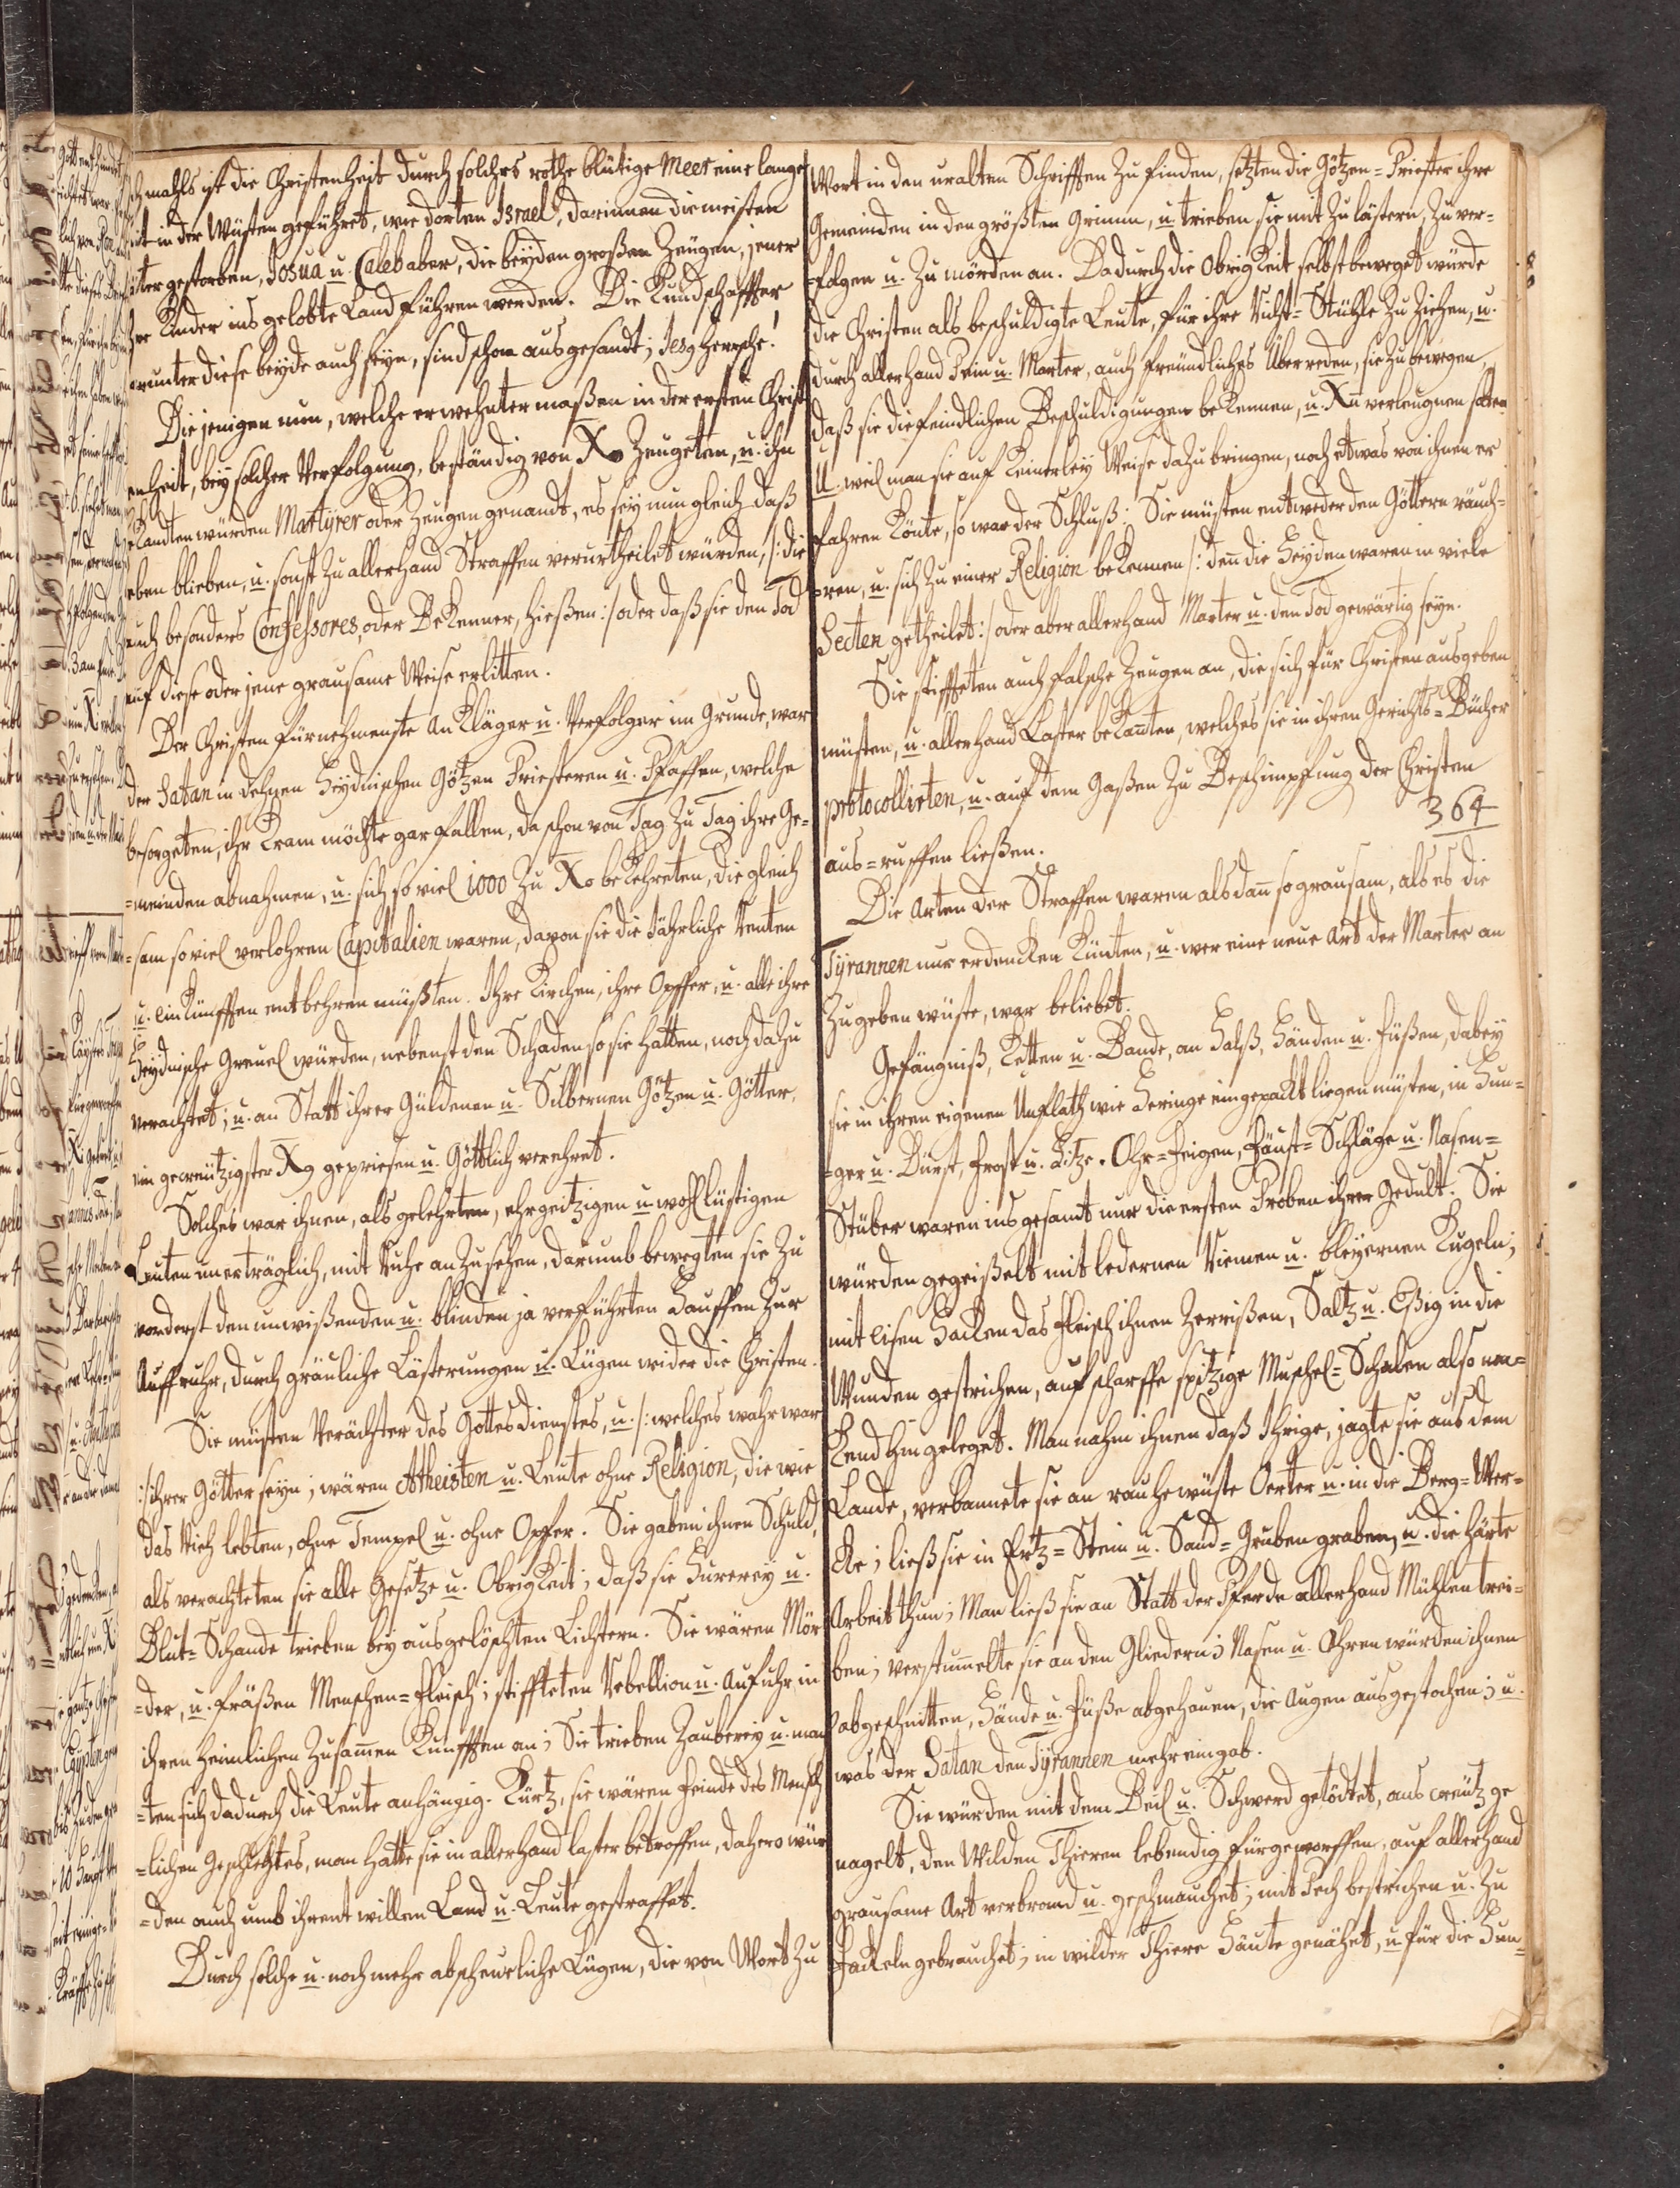 mahls ist die Christenheit durch solches rothe blutige Meer eine lange
in der Wüsten geführet, wie dorten Israel, darinnen die meisten
gestorben, Josua u. Caleb aber, die beyden großen Zeugen, jener
Kinder ins gelobte Land führen werden. Die Kundschaffter
runter diese beyde auch seyn, sind schon ausgesandt; Jesg herrsche!
Die jenigen nun, welche erwehnter maßen in der ersten Christ
enheit, bey solcher Verfolgung, beständig von Xo Zeugeten, u. ihn
kandten wurden Martyrer oder Zeugen genandt, es sey nun gleich daß
eben blieben, u. sonst zu allerhand Straffen verurtheilet wurden, /: die
auch besonders Confessores, oder Bekenner, hießen :/ oder daß sie den Tod
auf diese oder jene grausame Weise erlitten.
Der Christen fürnehmenste Ankläger u. Verfolger im Grunde, war
der Satan in dehnen Heydnischen Götzen Priesteren u. Pfaffen, welche
besorgeten, ihr Kram möchte gar fallen, da schon von Tag zu Tag ihre Ge-
=meinden abnahmen, u. sich so viel 1000 zu Xo bekehreten, die gleich
=sam so viel verlohren Capitalien waren, davon sie die Jährliche Renten
u. einkünfften entbehren müßten. Ihre Kirchen, ihre Opffer, u. alle ihre
Heydnische Greuel würden, nebenst den Schaden so sie hatten, noch dazu
verachtet; u. an Statt ihrer Güldenen u. Silbernen Götzen u. Götter,
ein gecreutzigster Xg gepriesen u. Göttlich verehret.
Solches war ihnen, als gelehrten, ehrgeitzigen u. wohllüstigen
Leuten unerträglich, mit Ruhe anzusehen, darumb bewegten sie zu
vorderst den unwißenden u. blinden ja verführten Hauffen zur
Auffruhr, durch gräuliche Lästerungen u. Lügen wider die Christen.
Sie müsten Verächter des Gottesdienstes, u. /: welches wahr war
:/ ihrer Götter seyn; wären Atheisten u. Leute ohne Religion, die wie
das Vieh lebten, ohne Tempel u. ohne Opfer. Sie gaben ihnen Schuld,
als verachteten sie alle Gesetze u. Obrigkeit; daß sie Hurerey u.
Blut=Schande trieben bey ausgelöschten Lichtern. Sie wären Mör
=der, u. fräßen Menschen=Fleisch; stiffteten Rebellion u. Aufuhr in
ihren heimlichen Zusamen Künfften an; Sie trieben Zauberey u. mach
=ten sich dadurch die Leute anhängig. Kurtz, sie wären Feinde des Mensch
=lichen Geschlechtes, man hatte sie in allerhand laster betroffen, dahero wür
=den auch umb ihrent willen Land u. Leute gestraffet.
Durch solche u. noch mehr abscheuliche Lügen, die von Wort zu
Wort in den uralten Schrifften zu finden, setzten die Götzen=Priester ihre
Gemeinden in den größten Grimm, u. trieben sie mit zu lästern, zu ver=
=folgen u. zu mörden an. Dadurch die Obrigkeit selbst beweget wurde
die Christen als beschuldigte Leute, für ihre Richt=Stühle zu ziehen, u.
durch allerhand Pein u. Marter, auch freundliches Überreden, sie zu bewegen,
daß sie die feindlichen Beschuldigungen bekennen, u. Xu verleugnen solten
U. weil man sie auf keinerley Weise dazu bringen, noch etwas von ihnen er
fahren konte, so war der Schluß: Sie müsten entweder den Göttern räuch=
=ren, u. sich zu einer Religion bekennen /: den die Heyden waren in viele
Secten getheilet :/ oder aber allerhand Marter u. den Tod gewärtig seyn.
Sie stiffteten auch falsche Zeugen an, die sich für Christen ausgeben
müsten, u. allerhand Laster bekanten, welches sie in ihren Gerichts=Bücher
protocollirten, u. auf dem Gaßen zu Beschimpfung der Christen
364
aus=ruffen ließen.
Die Arten der Straffen waren alsdan so grausam, als es die
Tyrannen nur erdencken künten, u. wer eine neue Art der Marter an
zugeben wüste, war beliebet.
Gefängniß, Ketten u. Bande, an Halß, Händen u. Füßen, dabey
sie in ihren eigenen Unflath wie Heringe eingepackt liegen müsten, in Hun=
=ger u. Durst, Frost u. Hitze. Ohr=Feigen, Faust=Schläge u. Nasen=
Stüber waren ins gesamt nur die ersten Proben ihrer Gedult. Sie
wurden gegeißelt mit ledernen Riemen u. bleyernen Kugeln;
mit eisen Hacken das Fleisch ihnen zerrißen, Saltz u. Eßig in die
Wunden gestrichen, auf scharffe spitzige Muschel=Schalen also nac=
kend hingeleget. Man nahm ihnen daß Ihrige, jagte sie aus dem
Lande, verbannete sie an rauhe wüste Oerter u. in die Berg=Wer=
cke; ließ sie in Ertz=Stein u. Sand=Gruben graben, u. die härte
Arbeit thun; Man ließ sie an Statt der Pferde allerhand Mühlen trei=
ben; verstumelte sie an den Gliedern; Nasen u. Ohren wurden ihnen
abgeschnitten, Hände u. Füße abgehauen, die Augen ausgestochen; u.
was der Satan den Tyrannen mehr eingab.
Sie wurden mit dem Beil u. Schwerd getödtet, ans creutz ge
nagelt, den Wilden Thieren lebendig fürgeworffen, auf allerhand
grausame Art verbrand u. geschmauchet; mit Pech bestrichen u. zu
Fackeln gebrauchet; in wilder Thiere Häute genähet, u. für die Hun=